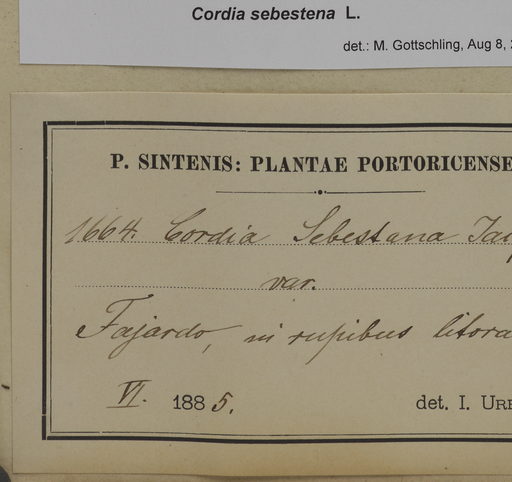 Cordia sebestena L.
det.: M. Gottschling, Aug 8,
P. SINTENIS: PLANTAE PORTORICENSE
1664. Cordia Sebestana Jaq
var.
Fajardo, in rupibus litora
VI. 1885.
det. I. URB